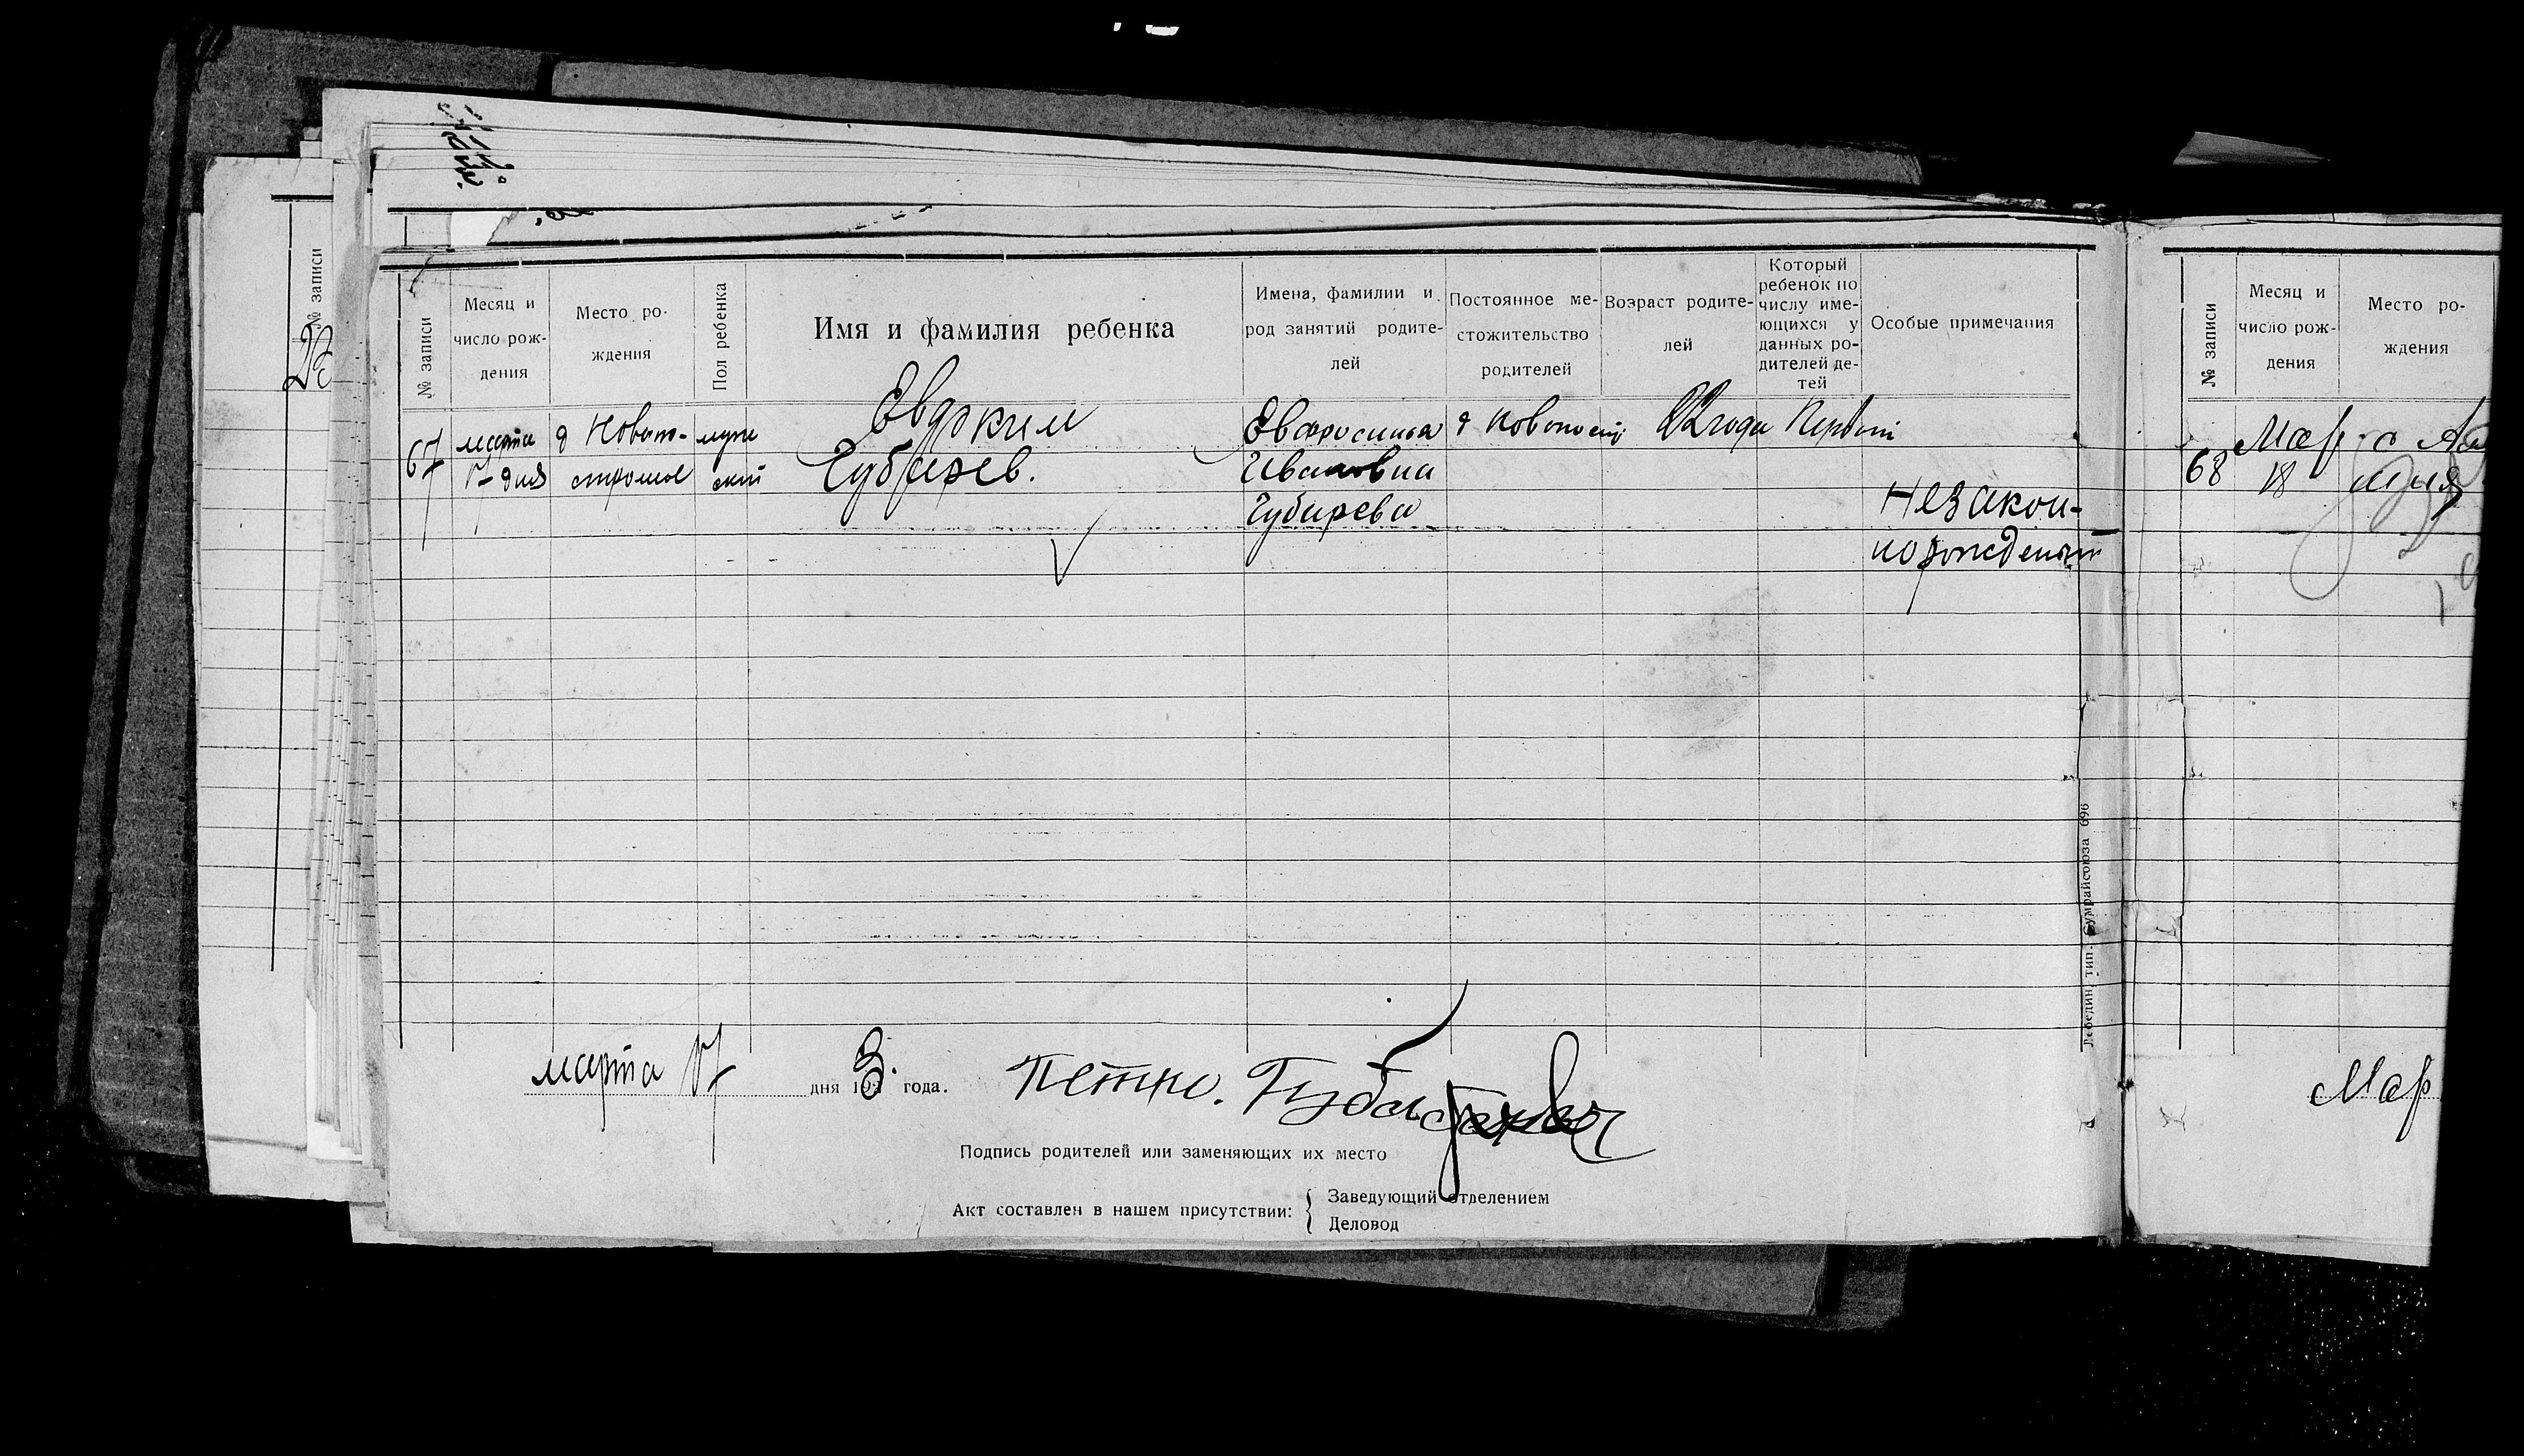 № записи
Месяц и
число рож-
дения
Место ро-
ждения
Пол ребенка
Имя и фамилия ребенка
Имена, фамилии и
род занятий родите-
лей
Постоянное ме-
стожительство
родителей
Возраст родите-
лей
Который
ребенок по
числу име-
ющихся у
данных ро-
дителей де-
тей
Особые примечания
67
марта
17 дня
д Новопо-
стромое
муж
ской
Евдоким
Губарев.
Евфросинья
Ивановна
Губарева
д
22 года
Первый
Незакон-
но рожденый
марта 17 дня 192 3 года.
Петно.
Подпись родителей или заменяющих их место
Акт составлен в нашем присутствии:
Заведующий отделением
Деловод
Лебедин, тип. Сумрайсоюза 696
№ записи
№ записи
Месяц и
число рож-
дения
Место ро-
ждения
68
Мар
18
Мар